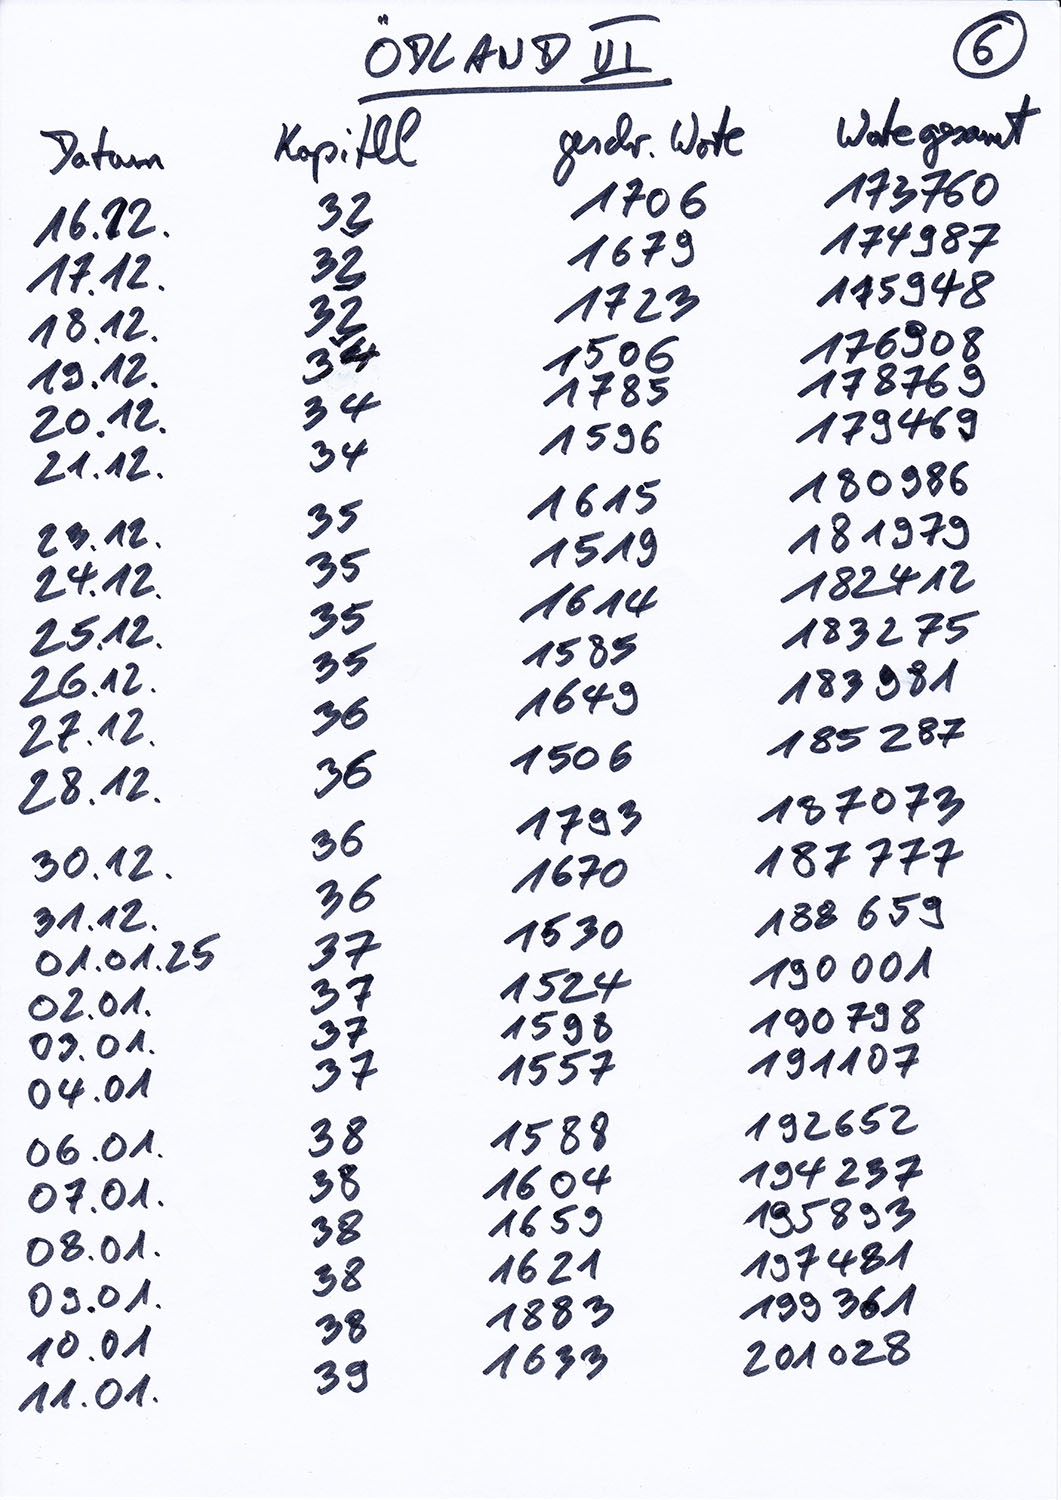 ÖDLAND VI
6
Datum Kapitel geschr. Worte Worte gesamt
16.12. 32 1706 173760
17.12. 32 1679 174987
18.12. 32 1723 175948
19.12. 34 1506 176908
20.12. 34 1785 178769
21.12. 34 1596 179469
23.12. 35 1615 180986
24.12. 35 1519 181979
25.12. 35 1614 182412
26.12. 35 1585 183275
27.12. 36 1649 183981
28.12. 36 1506 185287
30.12. 36 1793 187073
31.12. 36 1670 187777
01.01.25 37 1530 188659
02.01. 37 1524 190001
03.01. 37 1598 190798
04.01 37 1557 191107
06.01. 38 1588 192652
07.01. 38 1604 194237
08.01. 38 1659 195893
09.01. 38 1621 197481
10.01 38 1883 199361
11.01. 39 1633 201028